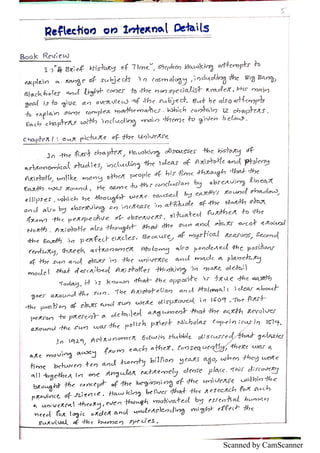 5
Reflection on Internal Details
Book Review
In "A Brief History of Time", Stephen Hawking attempts to
explain a range of subjects in cosmology, including the Big Bang,
Black holes and light cones to the non specialist reader. His main
goal is to give an overview of the subject. But he also attempts
to explain some complex mathematics. Which contain 12 chapters.
Each chapters with including main theme to given below.
Chapter 1: Our picture of the universe
In the first chapter, Hawking discusses the history of
astronomical studies, including the ideas of Aristotle and Ptolemy
Aristotle, unlike many other people of his time through that the
Earth was round. He came to this conclusion by observing lunar
ellipses, which he thought were caused by earth's round shadow,
and also by observing an increase in altitude of the North star
from the perspective of observers, situated further to the
North. Aristotle also thought that the sun and stars went around
the Earth in perfect circles. Because, of mystical reasons, Second
century, Greek astronomer Ptolemy also pondered the positions
of the sun and stars in the universe and made a planetary
model that described Aristotles thinking in more detail
Today, it is known that the opposite is true the earth
goes around the sun. The Aristotelian and Ptolmaic ideas about
the position of stars and sun were disproved in 1609. The first
person to present a detailed argument that the earth revolves
around the sun was the polish priest Nicholas Copernicus in 1514.
In 1929, Astronomer Edwin Hubble discussed that galaxies
are moving away from each other. Consequently, there was a
time between ten and twenty billion years ago, when they were
all together in one singular extremely dense place. This discovery
brought the concept of the beginning of the universe within the
province of science. Hawking belives that the research for such
a universal theory, even though motivated by essential human
need for logic order and understanding might effect the
survival of the human species.
Scanned by CamScanner